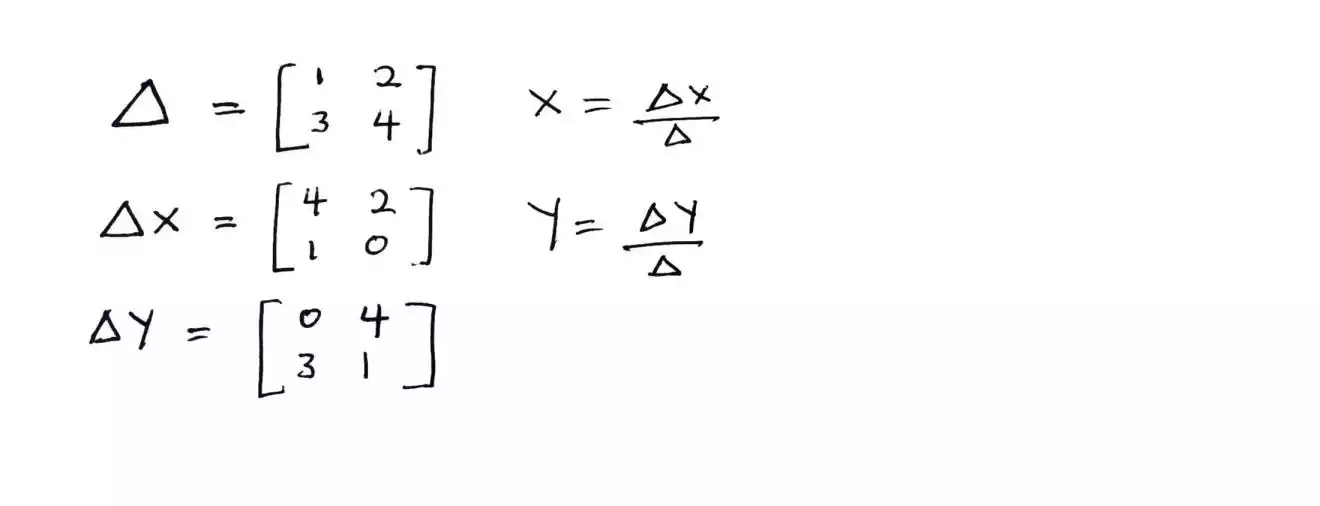 Δ = [1 2 3 4] X = ΔX/Δ
ΔX = [4 2 1 0] Y = ΔY/Δ
ΔY = [0 4 3 1]